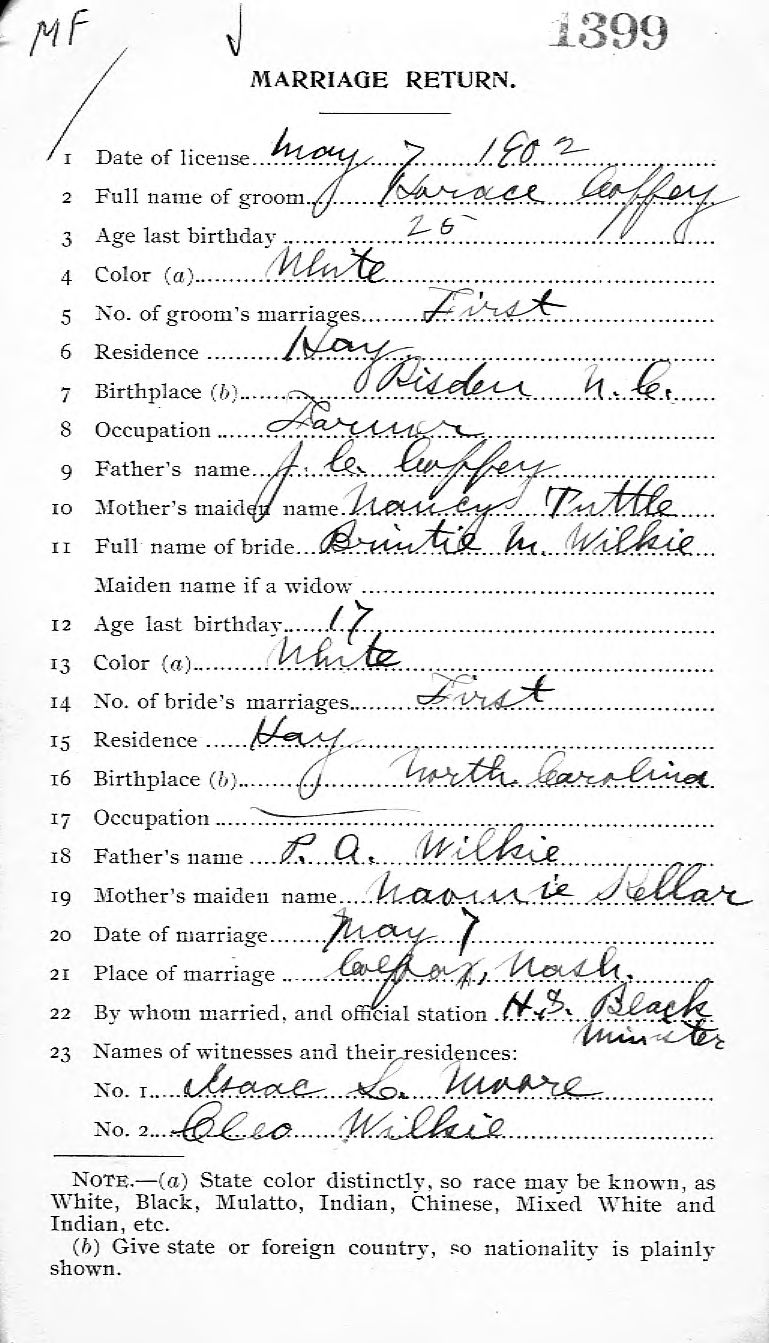 MF
1399
MARRIAGE RETURN.
1 Date of license May 7 1902
2 Full name of groom Horace Coffey
3 Age last birthday 25
4 Color (a) White
5 No. of groom's marriages First
6 Residence Hay
7 Birthplace (b) Risden N. C.
8 Occupation Farmer
9 Father's name J. C. Coffey
10 Mother's maiden name Nancy Tuttle
11 Full name of bride Brintie M. Wilkie
Maiden name if a widow
12 Age last birthday 17
13 Color (a) White
14 No. of bride's marriages First
15 Residence Hay
16 Birthplace (b) North Carolina
17 Occupation
18 Father's name P. A. Wilkie
19 Mother's maiden name Naomie Kellar
20 Date of marriage May 7
21 Place of marriage Colfax, Wash.
22 By whom married, and official station H.S. Black
Minister
23 Names of witnesses and their residences:
No. 1 Isaac L. Moore
No. 2 Cleo Wilkie
NOTE.—(a) State color distinctly, so race may be known, as
White, Black, Mulatto, Indian, Chinese, Mixed White and
Indian, etc.
(b) Give state or foreign country, so nationality is plainly
shown.